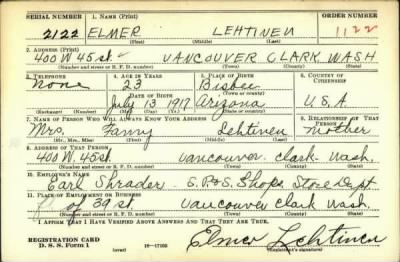 SERIAL NUMBER 1. NAME (Print) ORDER NUMBER
2122 ELMER LEHTINEN 1122
(First) (Middle) (Last)
2. ADDRESS (Print)
400 W 45 st. VANCOUVER CLARK WASH
(Number and street or R. F. D. number) (Town) (County) (State)
3. TELEPHONE 4. AGE IN YEARS 5. PLACE OF BIRTH 6. COUNTRY OF CITIZENSHIP
none 23 Bisbee
DATE OF BIRTH (Town or county)
July 13 1917 Arizona U.S.A
(Exchange) (Number) (Mo.) (Day) (Yr.) (State or country)
7. NAME OF PERSON WHO WILL ALWAYS KNOW YOUR ADDRESS 8. RELATIONSHIP OF THAT PERSON
Mrs. Fanny Lehtinen mother
(Mr., Mrs., Miss) (First) (Middle) (Last)
9. ADDRESS OF THAT PERSON
400 W. 45 st. Vancouver. Clark- Wash.
(Number and street or R. F. D. number) (Town) (County) (State)
10. EMPLOYER'S NAME
Earl Shrader - S.P.&S. Shops. Store Dept
11. PLACE OF EMPLOYMENT OR BUSINESS
of 39 st. Vancouver Clark Wash.
(Number and street or R. F. D. number) (Town) (County) (State)
I AFFIRM THAT I HAVE VERIFIED ABOVE ANSWERS AND THAT THEY ARE TRUE.
REGISTRATION CARD
D. S. S. Form 1 (over) 16—17105 Elmer Lehtinen
(Registrant's signature)